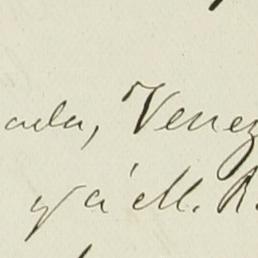 ada, Venez
y á M. R.